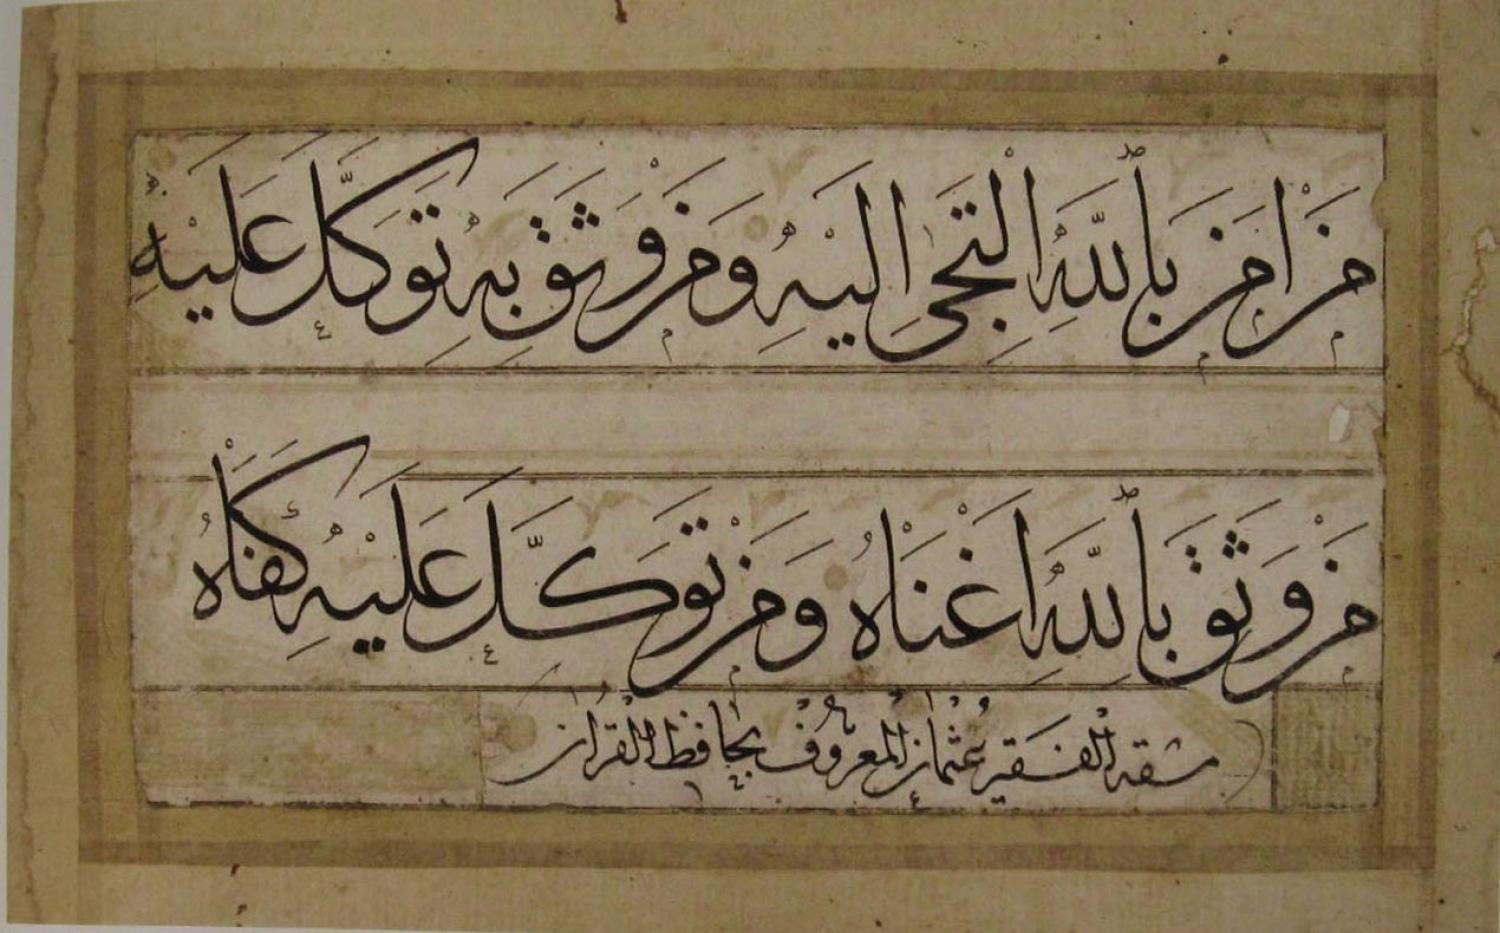 مَنْ اٰمَنَ بِاللّٰهِ الْتَجَىَ اِلَيْهِ وَمَنْ وَثَقَ بِهِ تَوَكَّلَ عَلَيْهِ
مَنْ وَثَقَ بِاللّٰهِ اَغْنَاهُ وَمَنْ تَوَكَّلَ عَلَيْهِ كَفَاهُ
مشقه الفقير عثمان المعروف بحافظ القرآن